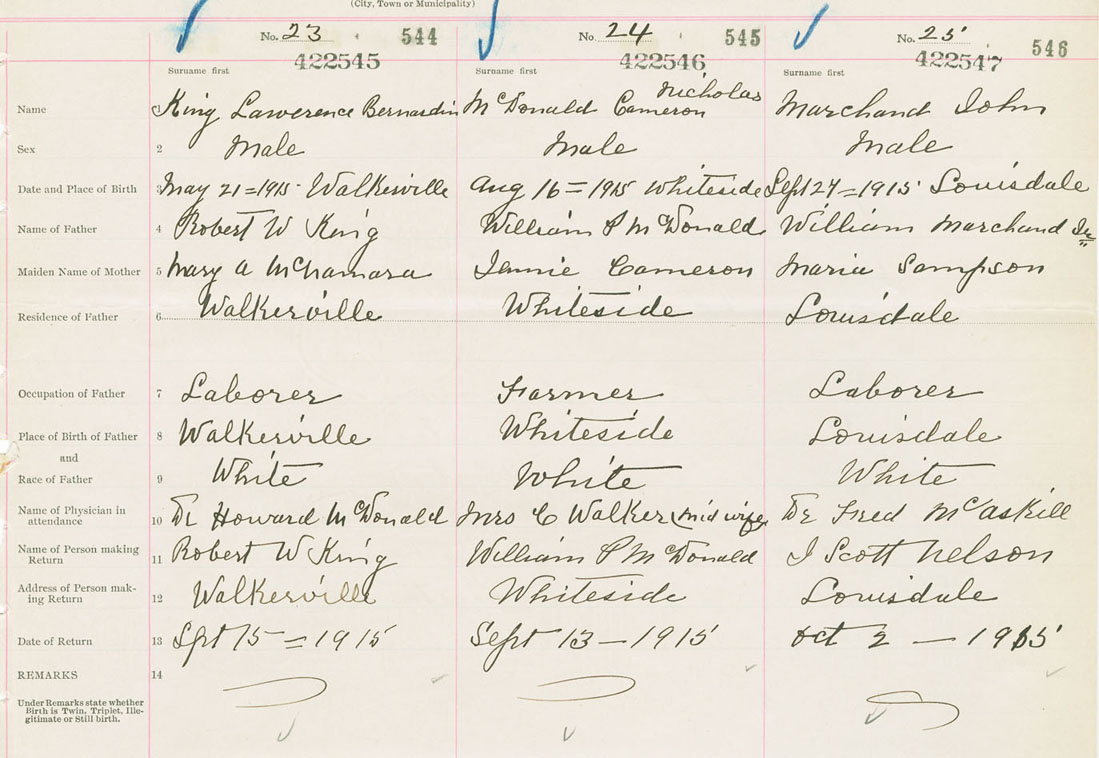 (City, Town or Municipality)
No. 23 544 No. 24 545 No. 25 546
422545 422546 422547
Surname first Surname first Surname first
Nicholas
Name King Lawerence Bernardin McDonald Cameron Marchand John
Sex 2 Male Male Male
Date and Place of Birth 3 May 21=1915 Walkerville Aug 16=1915 Whiteside Sept 27=1915 Louisdale
Name of Father 4 Robert W King William P McDonald William Marchand Jr
Maiden Name of Mother 5 Mary A McNamara Jennie Cameron Maria Sampson
Residence of Father 6 Walkerville Whiteside Louisdale
Occupation of Father 7 Laborer Farmer Laborer
Place of Birth of Father 8 Walkerville Whiteside Louisdale
and
Race of Father 9 White White White
Name of Physician in
attendance 10 Dr Howard McDonald Mrs C Walker (midwife) Dr Fred McAskill
Name of Person making
Return 11 Robert W King William P McDonald J Scott Nelson
Address of Person mak-
ing Return 12 Walkerville Whiteside Louisdale
Date of Return 13 Spt 15=1915 Sept 13—1915 Oct 2—1915
REMARKS 14
Under Remarks state whether
Birth is Twin, Triplet, Ille-
gitimate or Still birth.